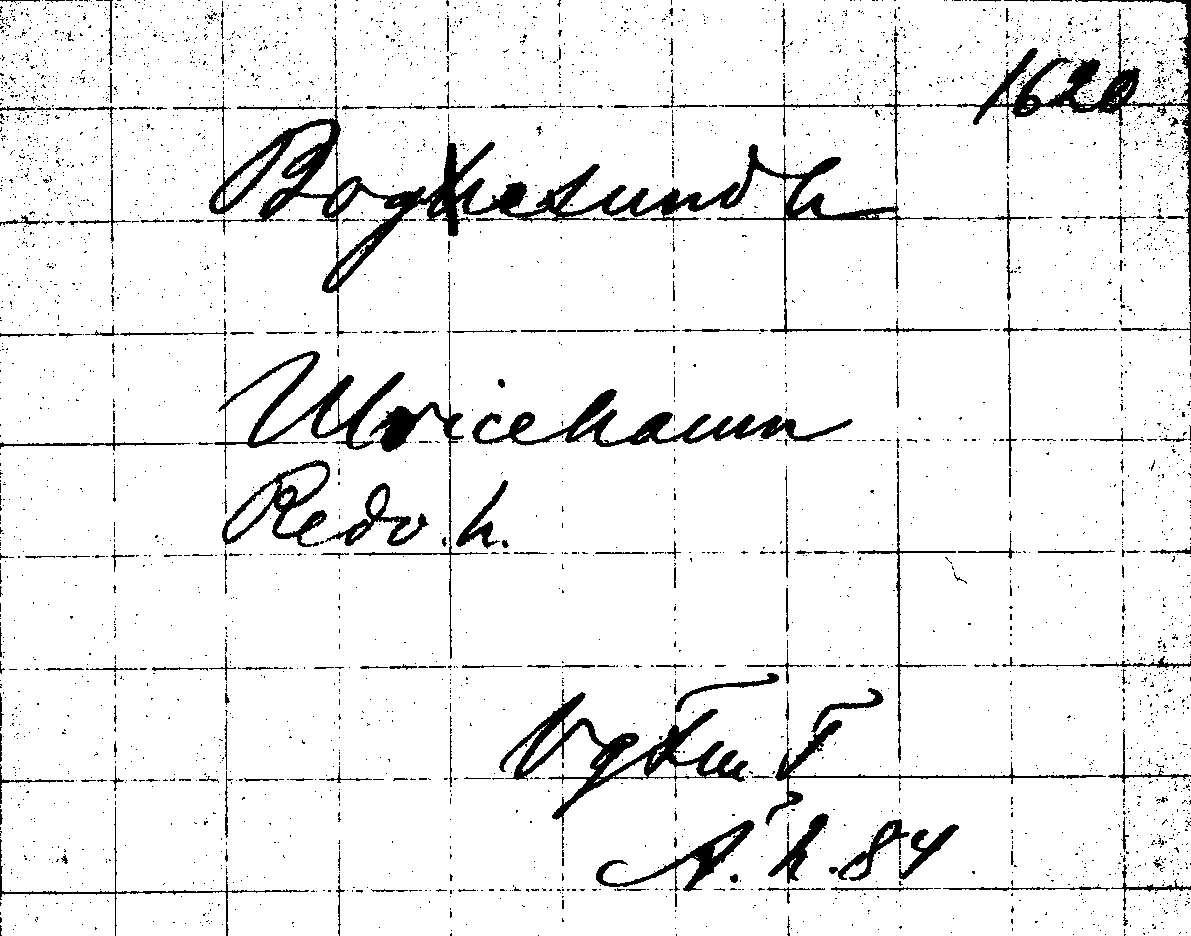 1620
Boghesund h
Ulricehamn
Redv. h.
VgFm T
h. 84